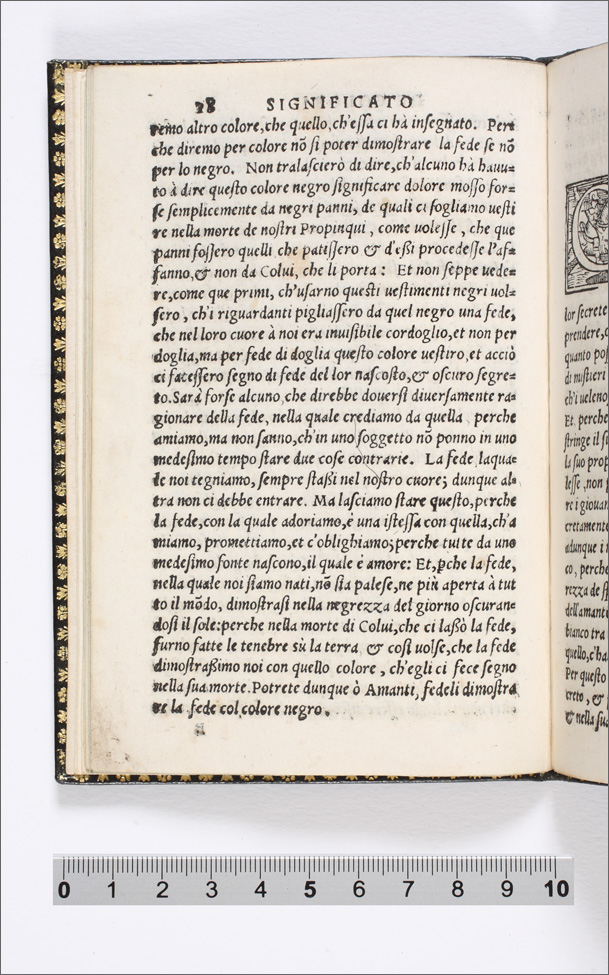 28 SIGNIFICATO
remo altro colore, che quello, ch'essa ci hà insegnato. Però
che diremo per colore nõ si poter dimostrare la fede se nõ
per lo negro. Non tralascierò di dire, ch'alcuno hà hauu=
to à dire questo colore negro significare dolore mosso for=
se semplicemente da negri panni, de quali ci sogliamo uesti
re nella morte de nostri Propinqui, come uolesse, che que
panni fossero quelli che patissero & d'eßi procedesse l'af=
fanno, & non da Colui, che li porta: Et non seppe uede=
re, come que primi, ch'usarno questi uestimenti negri uol=
sero, ch'i riguardanti pigliassero da quel negro una fede,
che nel loro cuore à noi era inuisibile cordoglio, et non per
doglia, ma per fede di doglia questo colore uestiro, et acciò
ci facessero segno di fede del lor nascosto, & oscuro segre=
to. Sarà forse alcuno, che direbbe douersi diuersamente ra=
gionare della fede, nella quale crediamo da quella perche
amiamo, ma non sanno, ch'in uno soggetto nõ ponno in uno
medesimo tempo stare due cose contrarie. La fede laqua=
le noi tegniamo, sempre staßi nel nostro cuore; dunque al=
tra non ci debbe entrare. Ma lasciamo stare questo, perche
la fede, con la quale adoriamo, è una istessa con quella, ch'a
miamo, promettiamo, et c'oblighiamo; perche tutte da uno
medesimo fonte nascono, il quale è amore: Et, ꝑche la fede,
nella quale noi siamo nati, nõ sia palese, ne più aperta à tut
to il mõdo, dimostrasi nella negrezza del giorno oscuran=
dosi il sole: perche nella morte di Colui, che ci laßò la fede,
furno fatte le tenebre sù la terra & così uolse, che la fede
dimostraßimo noi con quello colore, ch'egli ci fece segno
nella sua morte. Potrete dunque ò Amanti, fedeli dimostra
re la fede col colore negro.
lor secrete
prendere, c
quanto pos
di mistieri
ch'i ueleno
Et perche
stringe il s
la suo prop
lesse, non p
re i giouan
cretamente
adunque i
co, perche
rezza de sp
dell'amante
bianco tra
quello, c'ha
Per questo
creto, &
& nella sua
0 1 2 3 4 5 6 7 8 9 10